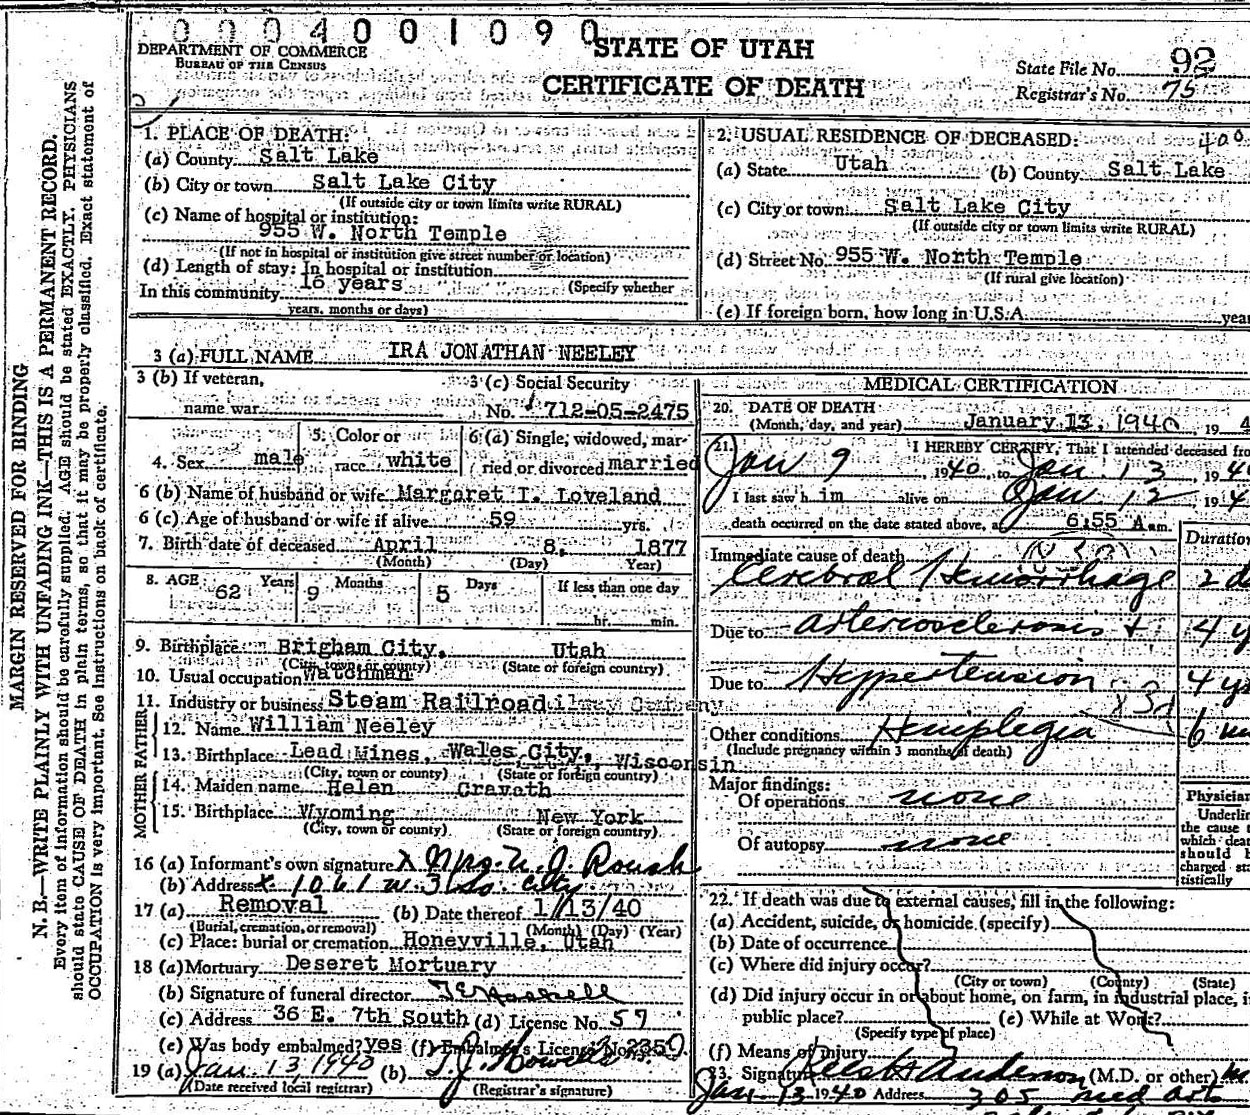 0004001090
DEPARTMENT OF COMMERCE
BUREAU OF THE CENSUS
STATE OF UTAH
CERTIFICATE OF DEATH
State File No. 92
Registrar's No. 75
MARGIN RESERVED FOR BINDING
N. B.—WRITE PLAINLY WITH UNFADING INK—THIS IS A PERMANENT RECORD.
Every item of information should be carefully supplied. AGE should be stated EXACTLY. PHYSICIANS
should state CAUSE OF DEATH in plain terms, so that it may be properly classified. Exact statement of
OCCUPATION is very important. See instructions on back of certificate.
1. PLACE OF DEATH:
(a) County Salt Lake
(b) City or town Salt Lake City
(If outside city or town limits write RURAL)
(c) Name of hospital or institution:
955 W. North Temple
(If not in hospital or institution give street number or location)
(d) Length of stay: In hospital or institution
In this community 16 years (Specify whether
years, months or days)
2. USUAL RESIDENCE OF DECEASED: 400
(a) State Utah (b) County Salt Lake
(c) City or town Salt Lake City
(If outside city or town limits write RURAL)
(d) Street No. 955 W. North Temple
(If rural give location)
(e) If foreign born, how long in U.S.A. year
3 (a) FULL NAME IRA JONATHAN NEELEY
3 (b) If veteran, name war
3 (c) Social Security No. 712-05-2475
4. Sex male 5. Color or race white 6 (a) Single, widowed, married or divorced married
6 (b) Name of husband or wife Margaret I. Loveland
6 (c) Age of husband or wife if alive 59 yrs.
7. Birth date of deceased April 8, 1877
(Month) (Day) Year)
8. AGE 62 Years 9 Months 5 Days If less than one day
hr. min.
9. Birthplace Brigham City, Utah
(City, town or county) (State or foreign country)
10. Usual occupation Watchman
11. Industry or business Steam Railroad
FATHER
12. Name William Neeley
13. Birthplace Lead Mines, Wales City, Wisconsin
(City, town or county) (State or foreign country)
MOTHER
14. Maiden name Helen Cravath
15. Birthplace Wyoming New York
(City, town or county) (State or foreign country)
16 (a) Informant's own signature X Mrs. N. J. Roush
(b) Address X 1061 W. 3 So. City
17 (a) Removal (b) Date thereof 1/13/40
(Burial, cremation, or removal) (Month) (Day) (Year)
(c) Place: burial or cremation Honeyville, Utah
18 (a) Mortuary Deseret Mortuary
(b) Signature of funeral director
(c) Address 36 E. 7th South (d) License No. 59
(e) Was body embalmed? yes (f) Embalmer's License No.
19 (a) Jan. 13 1940 (b)
(Date received local registrar) (Registrar's signature)
MEDICAL CERTIFICATION
20. DATE OF DEATH
(Month, day, and year) January 13, 1940, 19 4
21. I HEREBY CERTIFY, That I attended deceased fro
Jan 9, 1940, to Jan 13, 194
I last saw h im alive on Jan 12, 194
death occurred on the date stated above, a 6:55 A m.
Duration
Immediate cause of death
Cerebral Hemorrhage 2 d
Due to arteriosclerosis + 4 y
Due to Hypertension 4 ys
Other conditions Hemiplegia 6 m
(Include pregnancy within 3 months of death)
Major findings:
Of operations none
Of autopsy none
Physician
Underlin
the cause t
which deat
should b
charged sta
tistically
22. If death was due to external causes, fill in the following:
(a) Accident, suicide, or homicide (specify)
(b) Date of occurrence
(c) Where did injury occur?
(City or town) (County) (State)
(d) Did injury occur in or about home, on farm, in industrial place, i
public place? (e) While at Work?
(Specify type of place)
(f) Means of injury
23. Signature Anderson (M.D. or other)
Jan. 13 1940 Address 305 Med Arts